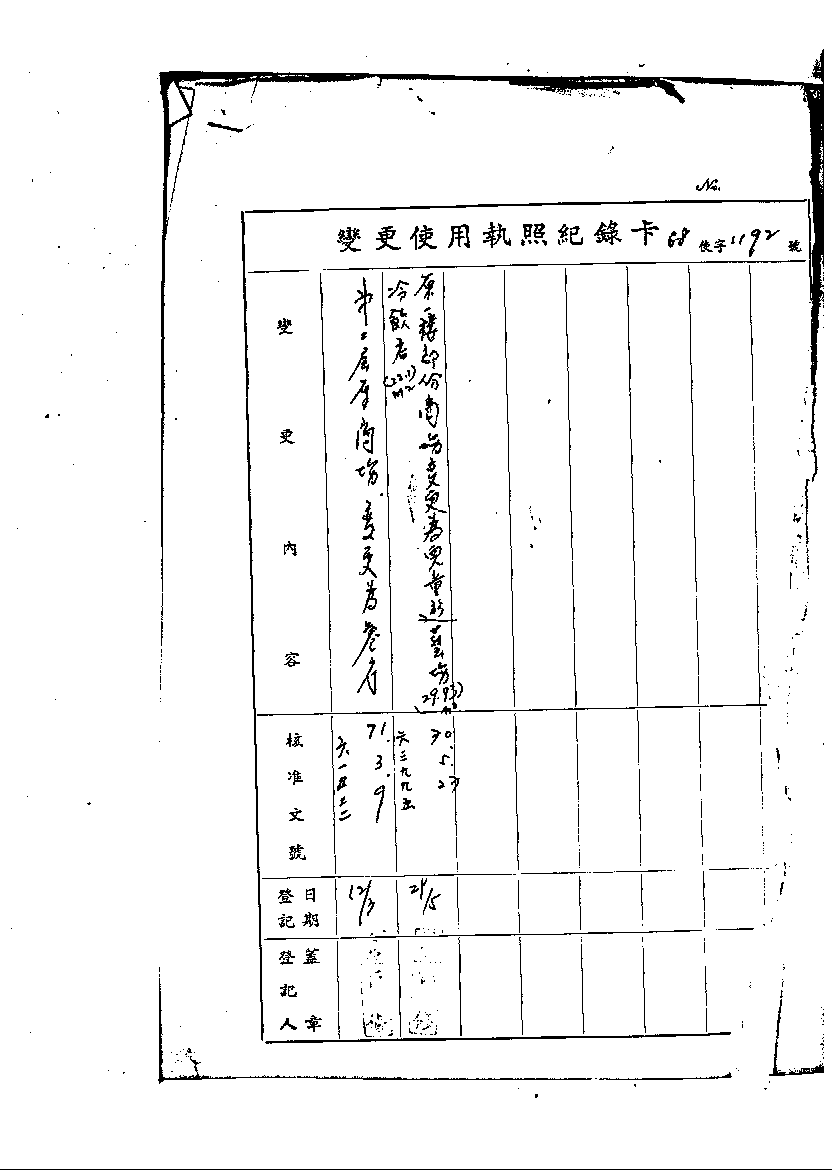 No.
變更使用執照紀錄卡 68 使字1192 號
變更內容
第二層原商場變更為餐廳
原一樓部份商場變更為兒童遊藝場(29.93)
冷飲店(22.1)m2
核准文號
71.3.9
六一五二二
70.5.23
六三九九五
登記日期
12/3
25/5
登記人蓋章